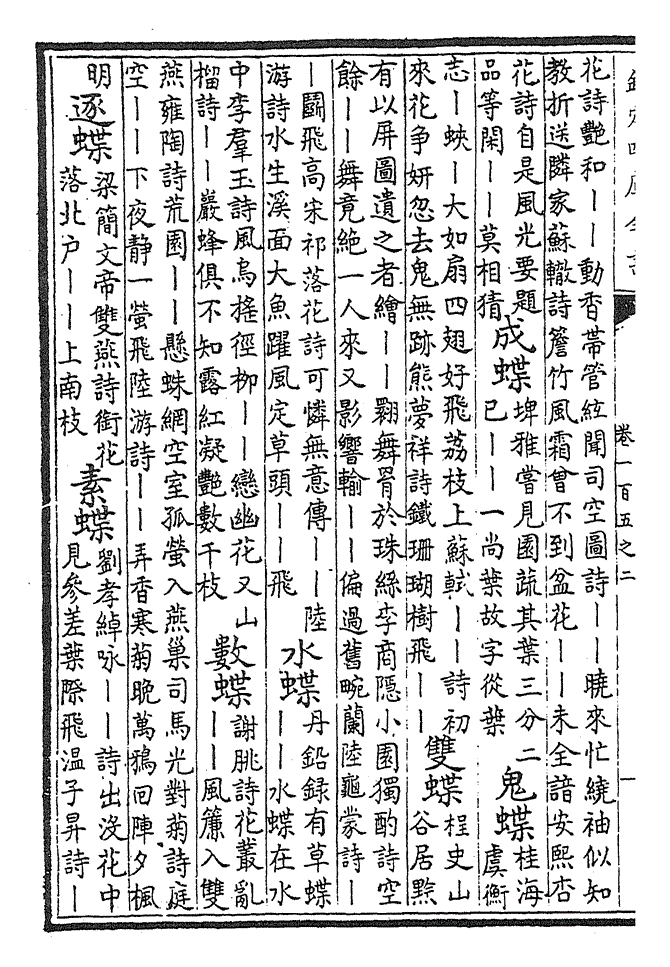 欽定四庫全書
卷一百五之二
花詩艷和——動香帶管絃聞司空圖詩——曉來忙繞袖似知
教折送隣家蘇轍詩簷竹風霜曾不到盆花——未全諳安熙杏
花詩自是風光要題
品等閑——莫相猜
成蝶
埤雅嘗見園蔬其葉三分二
已——一尚葉故字從葉
鬼蝶
桂海
虞衡
志—蛺—大如扇四翅好飛荔枝上蘇軾——詩初
來花争妍忽去鬼無跡熊夢祥詩鐵珊瑚樹飛——
雙蝶
桯史山
谷居黔
有以屏圖遺之者繪——翾舞罥於珠絲李商隱小園獨酌詩空
餘——舞竟絶一人來又影響輸——偏過舊畹蘭陸龜蒙詩—
—鬭飛高宋祁落花詩可憐無意傳——陸
游詩水生溪面大魚躍風定草頭——飛
水蝶
丹鉛録有草蝶
——水蝶在水
中李羣玉詩風鳥摇徑柳——戀幽花又山
榴詩——嚴蜂俱不知露紅凝艷數千枝
數蝶
謝朓詩花叢亂
——風簾入雙
燕雍陶詩荒園——懸蛛網空室孤螢入燕巢司馬光對菊詩庭
空——下夜静一螢飛陸游詩——弄香寒菊晚萬鴉回陣夕楓
明
逐蝶
梁簡文帝雙燕詩銜花
落北户——上南枝
素蝶
劉孝綽咏——詩出没花中
見參差葉際飛温子昇詩—